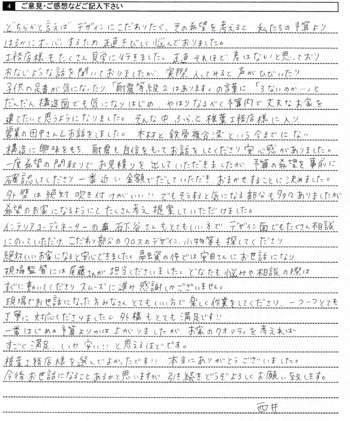 4 ご意見・ご感想などご記入下さい
どちらかと言えば デザインにこだわりたく、その希望を考えると 私たちの予算より
はるかにオーバーするため 正直きびしく悩んでおりました。
工務店様もたくさん見学に行きました。正直 それほど差はないと思っており
おなじような話を聞いておりましたが、実際 入ってみると 声がひびいたり
子供の足音が気になったり「耐震等級2はあります。」の言葉に「3ないの…」と
だんだん構造面でも気になりはじめ やはりなるべく予算内で丈夫なお家を
建てたいと思うようになりました。そんな中 ふらっと 積里工務店様に入り
営業の田中さんお話をしました。木材と鉄骨複合梁という今までにない
構造に興味をもち 耐震も自信をもってお話をしてくださり安心感がありました。
一度希望の間取りでお見積りを出していただきましたが 予算の希望を事前に
確認してくださり 一番近い金額でだしていただき おまかせすることに決めました。
外壁は絶対吹き付けがいい!! でもそうすると気になる部分も多々ありましたが
希望のお家になるようにとたくさん考え 提案していただけました。
インテリアコーディネーターの 石谷さんもとてもいい方で デザイン面でもたくさん相談
にのっていただけ こだわり部分のクロスのデザイン、小物等も探してくださり
絶対いいお家になると安心できました。融資の件では安田さんにお世話になり
現場監督には尾藤さんが担当くださいました。どなたも悩みや相談の際は
すぐに動いてくださりスムーズに進み感謝しかございません。
現場でお世話になった方みなさんとてもいい方で 楽しく作業をしてくださり、一つ一つとても
丁寧に対応くださりました。外構もとても満足です!!
一番はじめの予算よりかは上がりましたが お家のクオリティを考えれば
すごく満足しかない!!と思えるほどです。
積里工務店様を選んでよかったです!! 本当にありがとうございました。
今後お世話になることあるかと思いますが 引き続きどうぞよろしくお願い致します。
西井